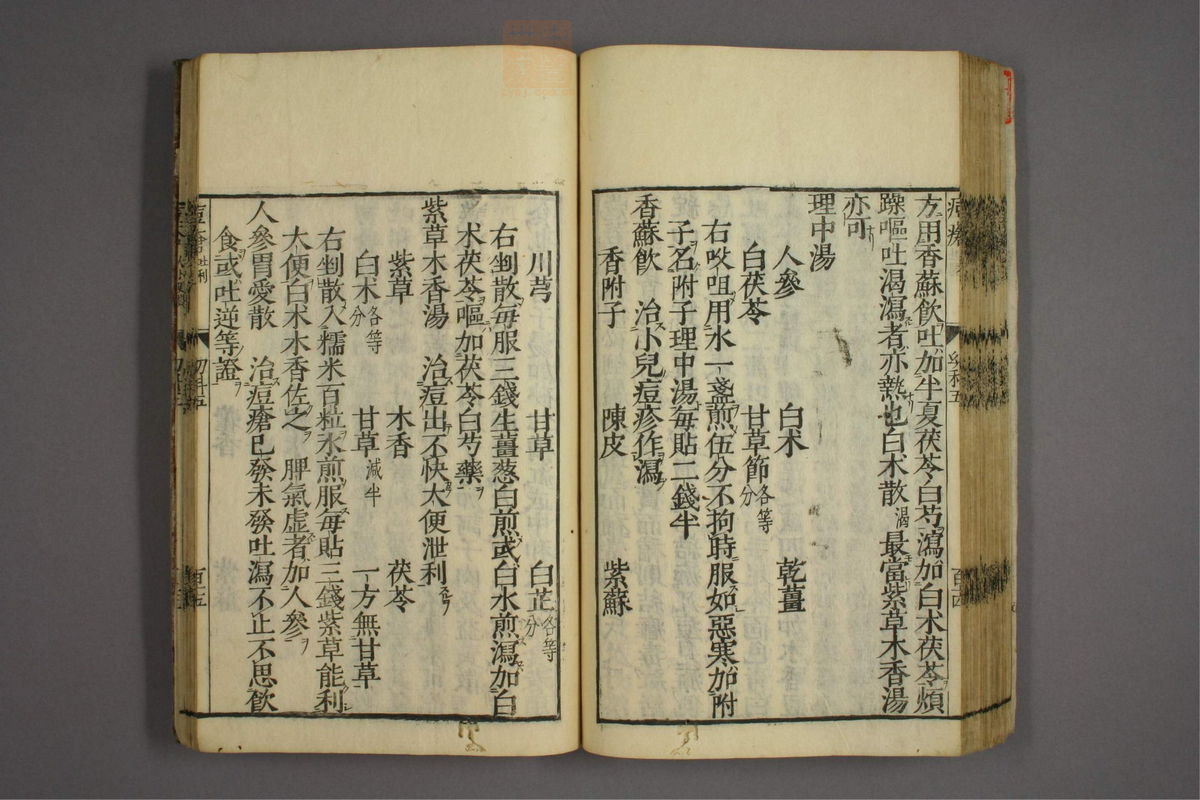 方用香蘇飲吐加半夏茯苓白芍瀉加白朮茯苓煩
躁嘔吐渴瀉者亦熱也白朮散渴最當紫草木香湯
亦可
理中湯
人參 白朮 乾薑
白茯苓 甘草節各等分
右㕮咀用水一盞煎伍分不拘時服如惡寒加附
子名附子理中湯每貼二錢半
香蘇飲 治小兒痘疹作瀉
香附子 陳皮 紫蘇
川芎 甘草 白芷各等分
右剉散每服三錢生薑葱白煎或白水煎瀉加白
朮茯苓嘔加茯苓白芍藥
紫草木香湯 治痘出不快大便泄利
紫草 木香 茯苓
白朮各等分 甘草減半 一方無甘草
右剉散入糯米百粒水煎服每貼三錢紫草能利
大便白朮木香佐之 脾氣虛者加人參
人參胃愛散 治痘瘡已發未發吐瀉不止不思飲
食或吐逆等證